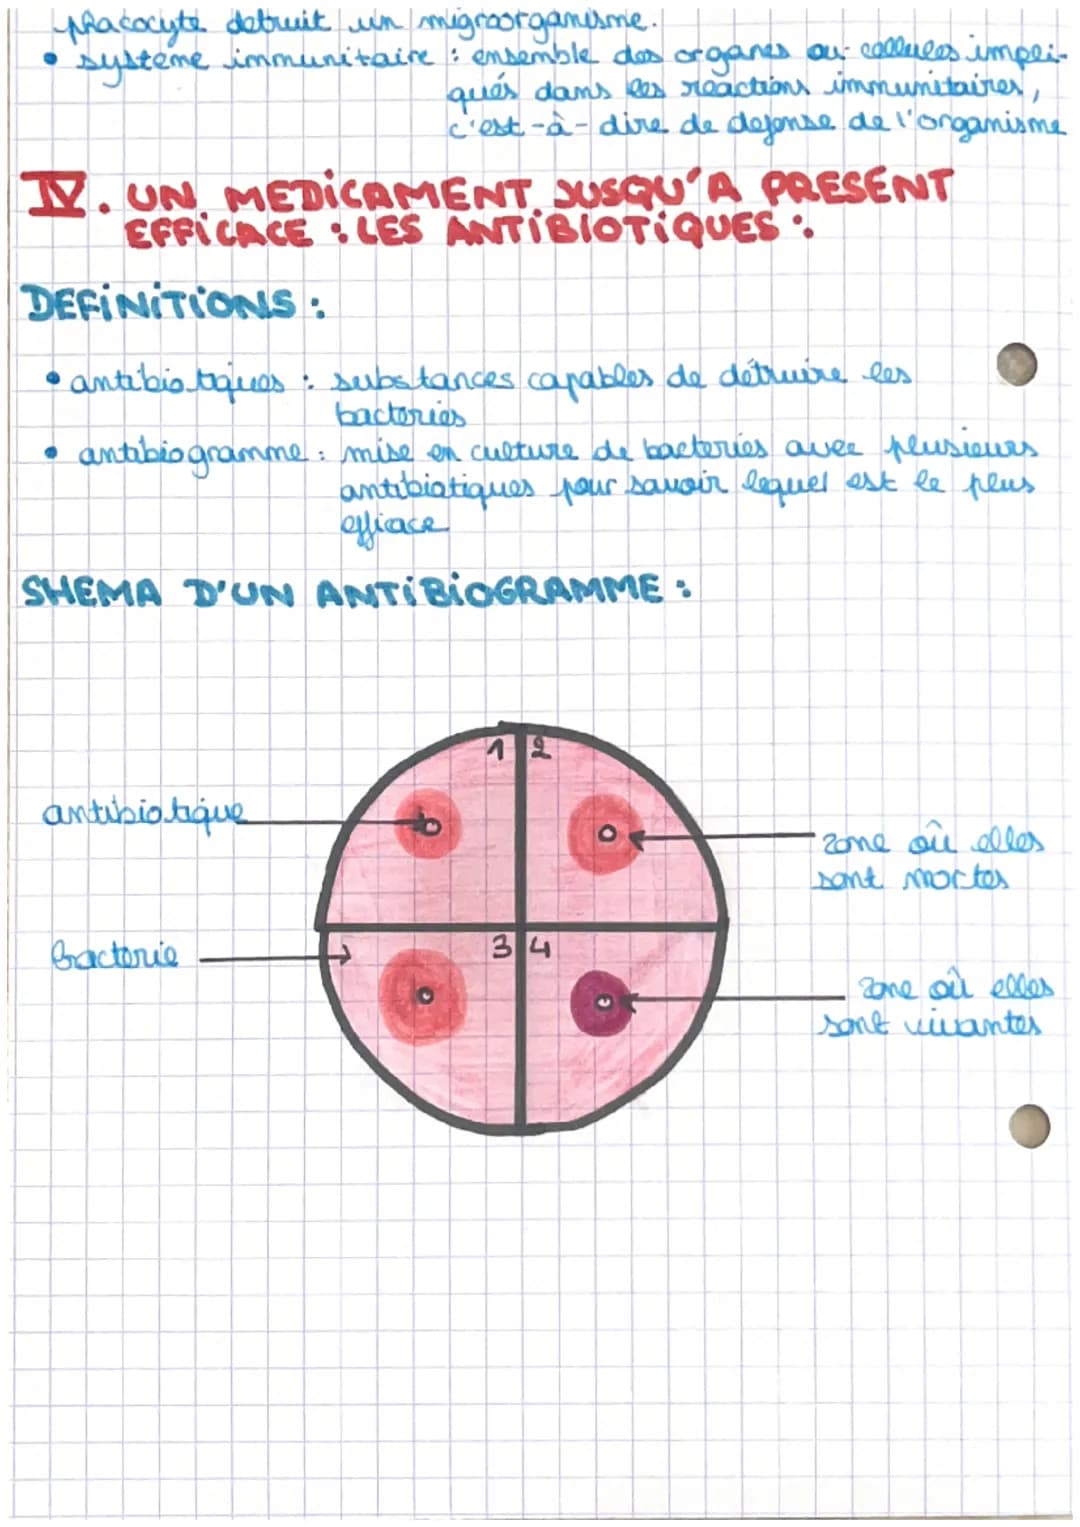 phacocyte detruit un migroorganisme.
• système immunitaire : ensemble des organes ou cellules impli-
qués dans les réactions immunitaires,
c'est-à-dire de defense de l'organisme
IV. UN MEDICAMENT JUSQU'A PRESENT
EFFICACE : LES ANTIBIOTIQUES :
DEFINITIONS :
• antibiotiques : substances capables de détruire les
bacteries
• antibiogramme : mise en culture de bacteries avec plusieurs
antibiotiques pour savoir lequel est le plus
efficace
SHEMA D'UN ANTIBIOGRAMME :
1 2
antibiotique
zone où elles
sont mortes
bacterie
3 4
zone où elles
sont vivantes